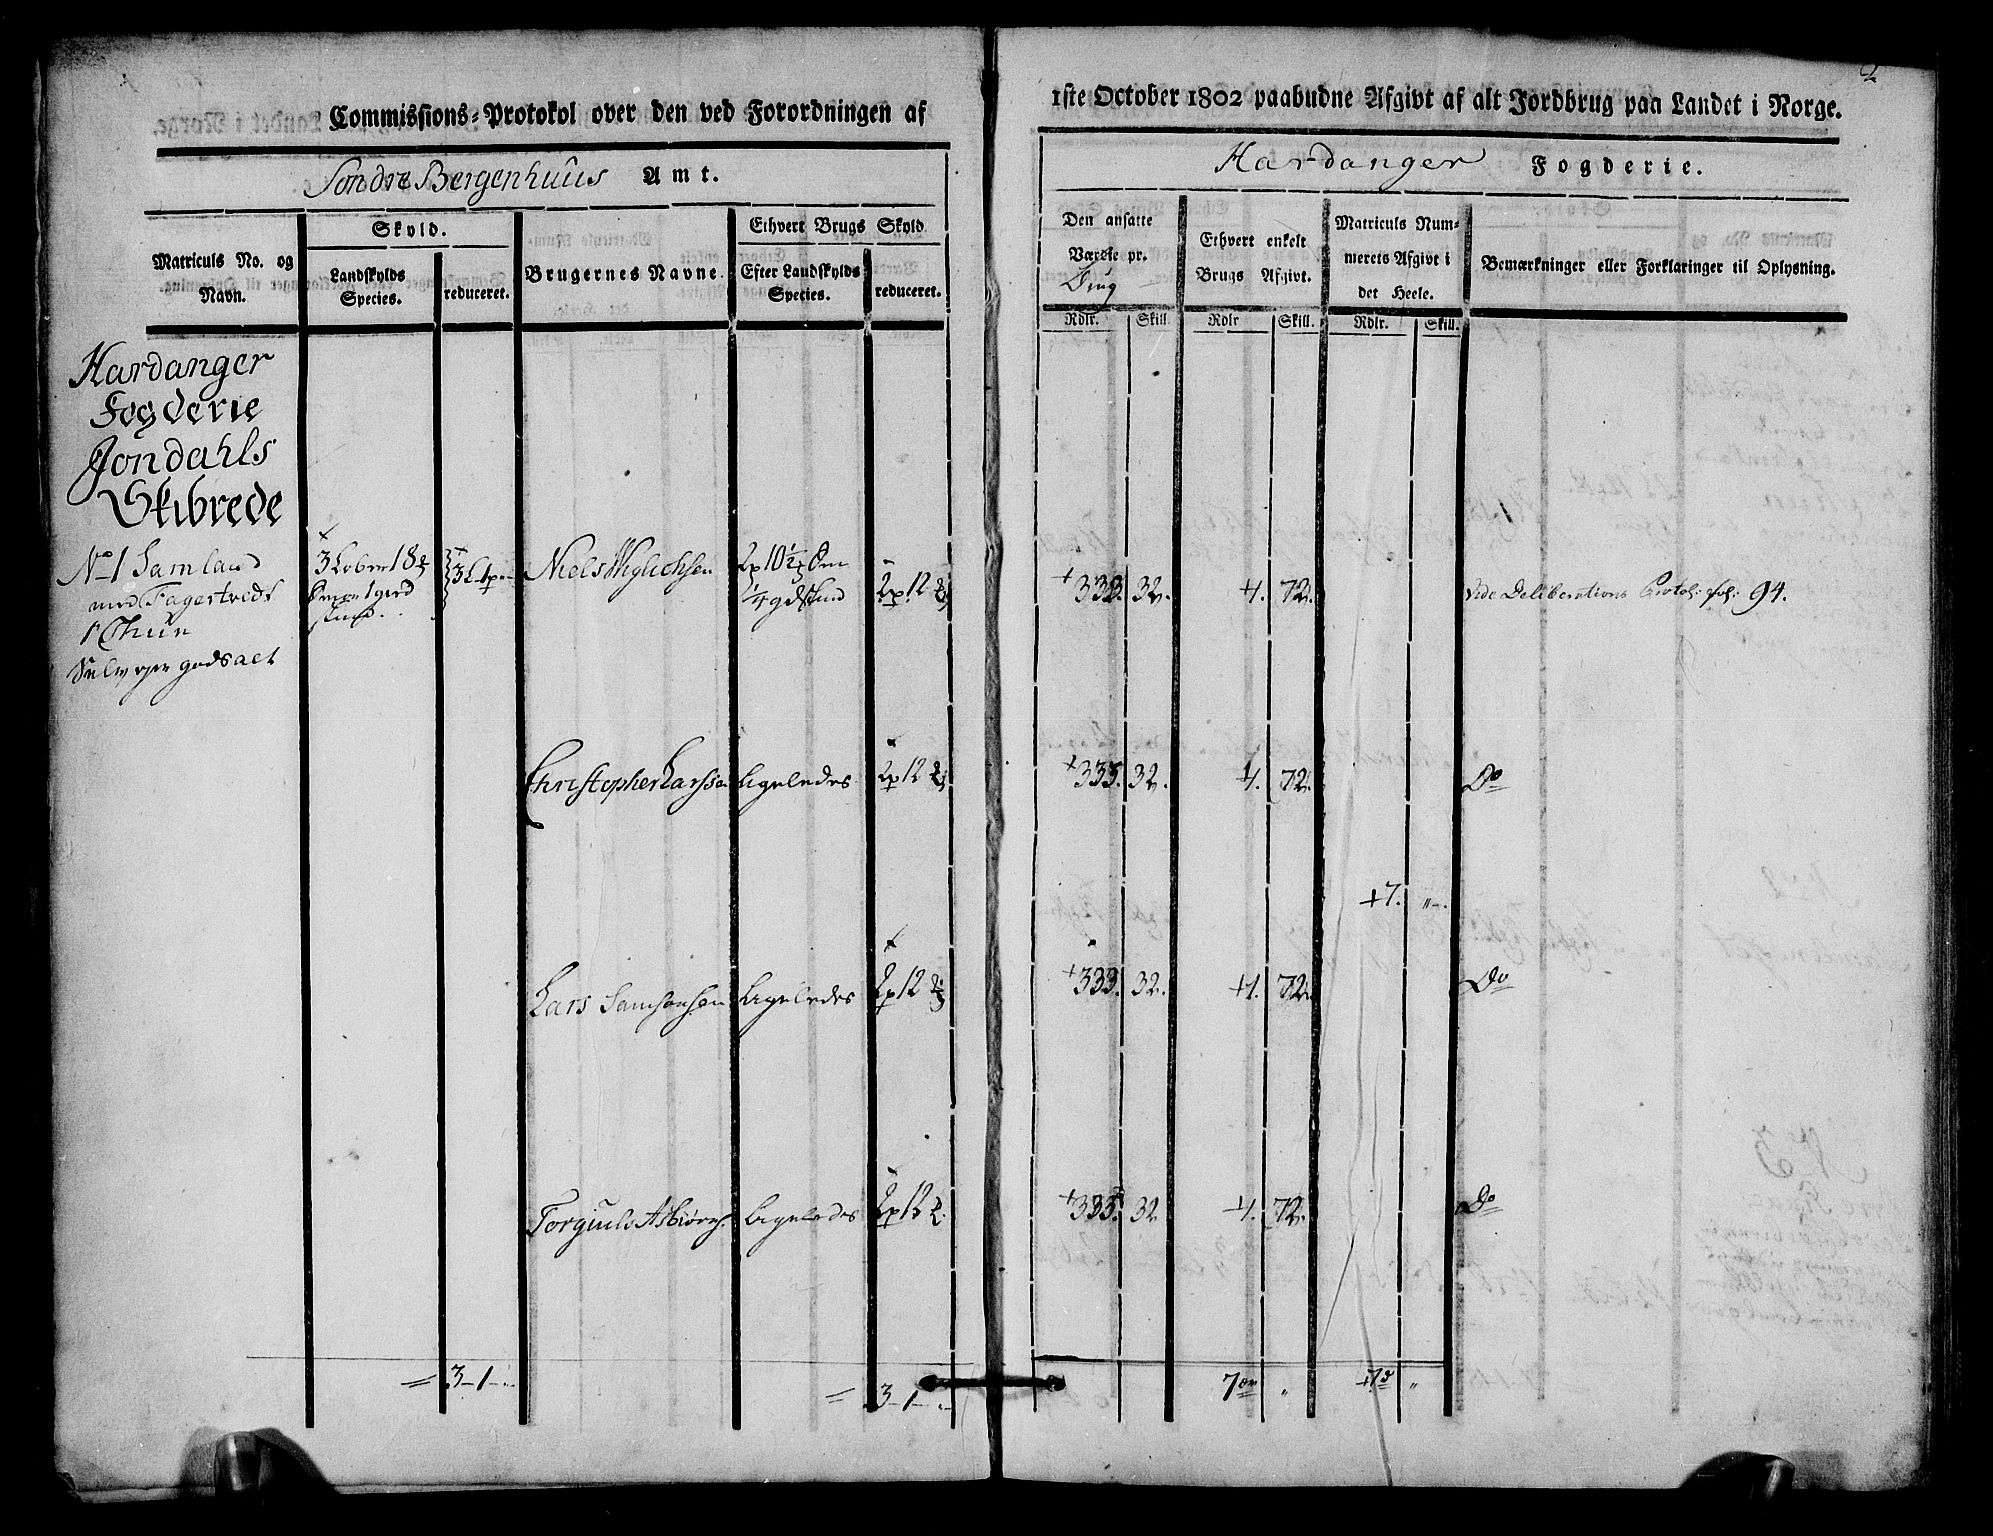 2
Commissions-Protokol over den ved Forordningen af
1ste October 1802 paabudne Afgivt af alt Jordbrug paa Landet i Norge.
Søndre Bergenhuus Amt.
Hardanger Fogderie.
Matriculs No. og Navn.
Skyld.
Landskylds Species.
reduceret.
Brugernes Navne.
Ethvert Brugs Skyld.
Efter Landskylds Species.
reduceret.
Den ansatte Værdie pr. Brug
Rdlr. Skill.
Ethvert enkelt Brugs Afgivt.
Rdlr Skill.
Matriculs Nummerets Afgivt i det Heele.
Rdlr. Skill.
Bemærkninger eller Forklaringer til Oplysning.
Hardanger
Fogderie
Jondahls
Skibrede
No 1 Samland
med Fagertvedt
Selveyer gods alt
3 Løber 18
Niels
1/4 gdskind
12
333. 32.
4. 72.
vide Deliberations Protol: fol: 94.
Christopher Larssen
Ligeledes
12
333. 32.
4. 72.
Do
+7. "-.
Lars Samsonsen
Ligeledes
12
333. 32.
4. 72.
Do
Torgiuls Asbiørns.
Ligeledes
12
333. 32
4. 72.
Do
= 3-1-"-
= 3-1-"-
7 "